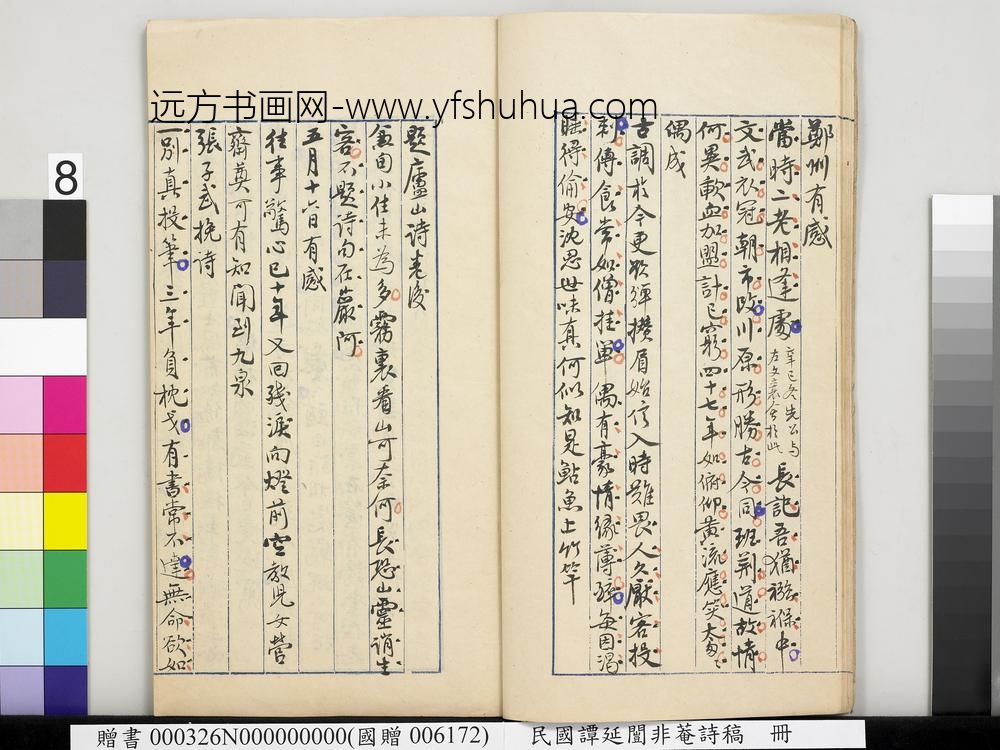 远方书画网-www.yfshuhua.com
鄭州有感
當時二老相逢處辛巳冬先公与左文襄會於此長記吾猶襁褓中
文武衣冠朝市改川原形勝古今同班荆道故情
何異歃血加盟計已窮四十七年如俯仰黄流應笑太匆匆
偶成
古調於今更欲彈攢眉始信入時難畏人久厭客投
刺傳食常如僧挂單偶有豪情緣薄醉每因渴
睡得偷安沈思世味真何似知是鮎魚上竹竿
題廬山詩卷後
兼旬小住未為多霧裏看山可奈何長恐山靈誚生
客不題詩句在巖阿
五月十六日有感
往事驚心已十年又回殘淚向燈前空教兒女營
齋奠可有知聞到九泉
張子武挽詩
一別真投筆三年負枕戈有書常不達無命欲如
8
贈書 000326N000000000(國贈 006172) 民國譚延闓非菴詩稿 冊